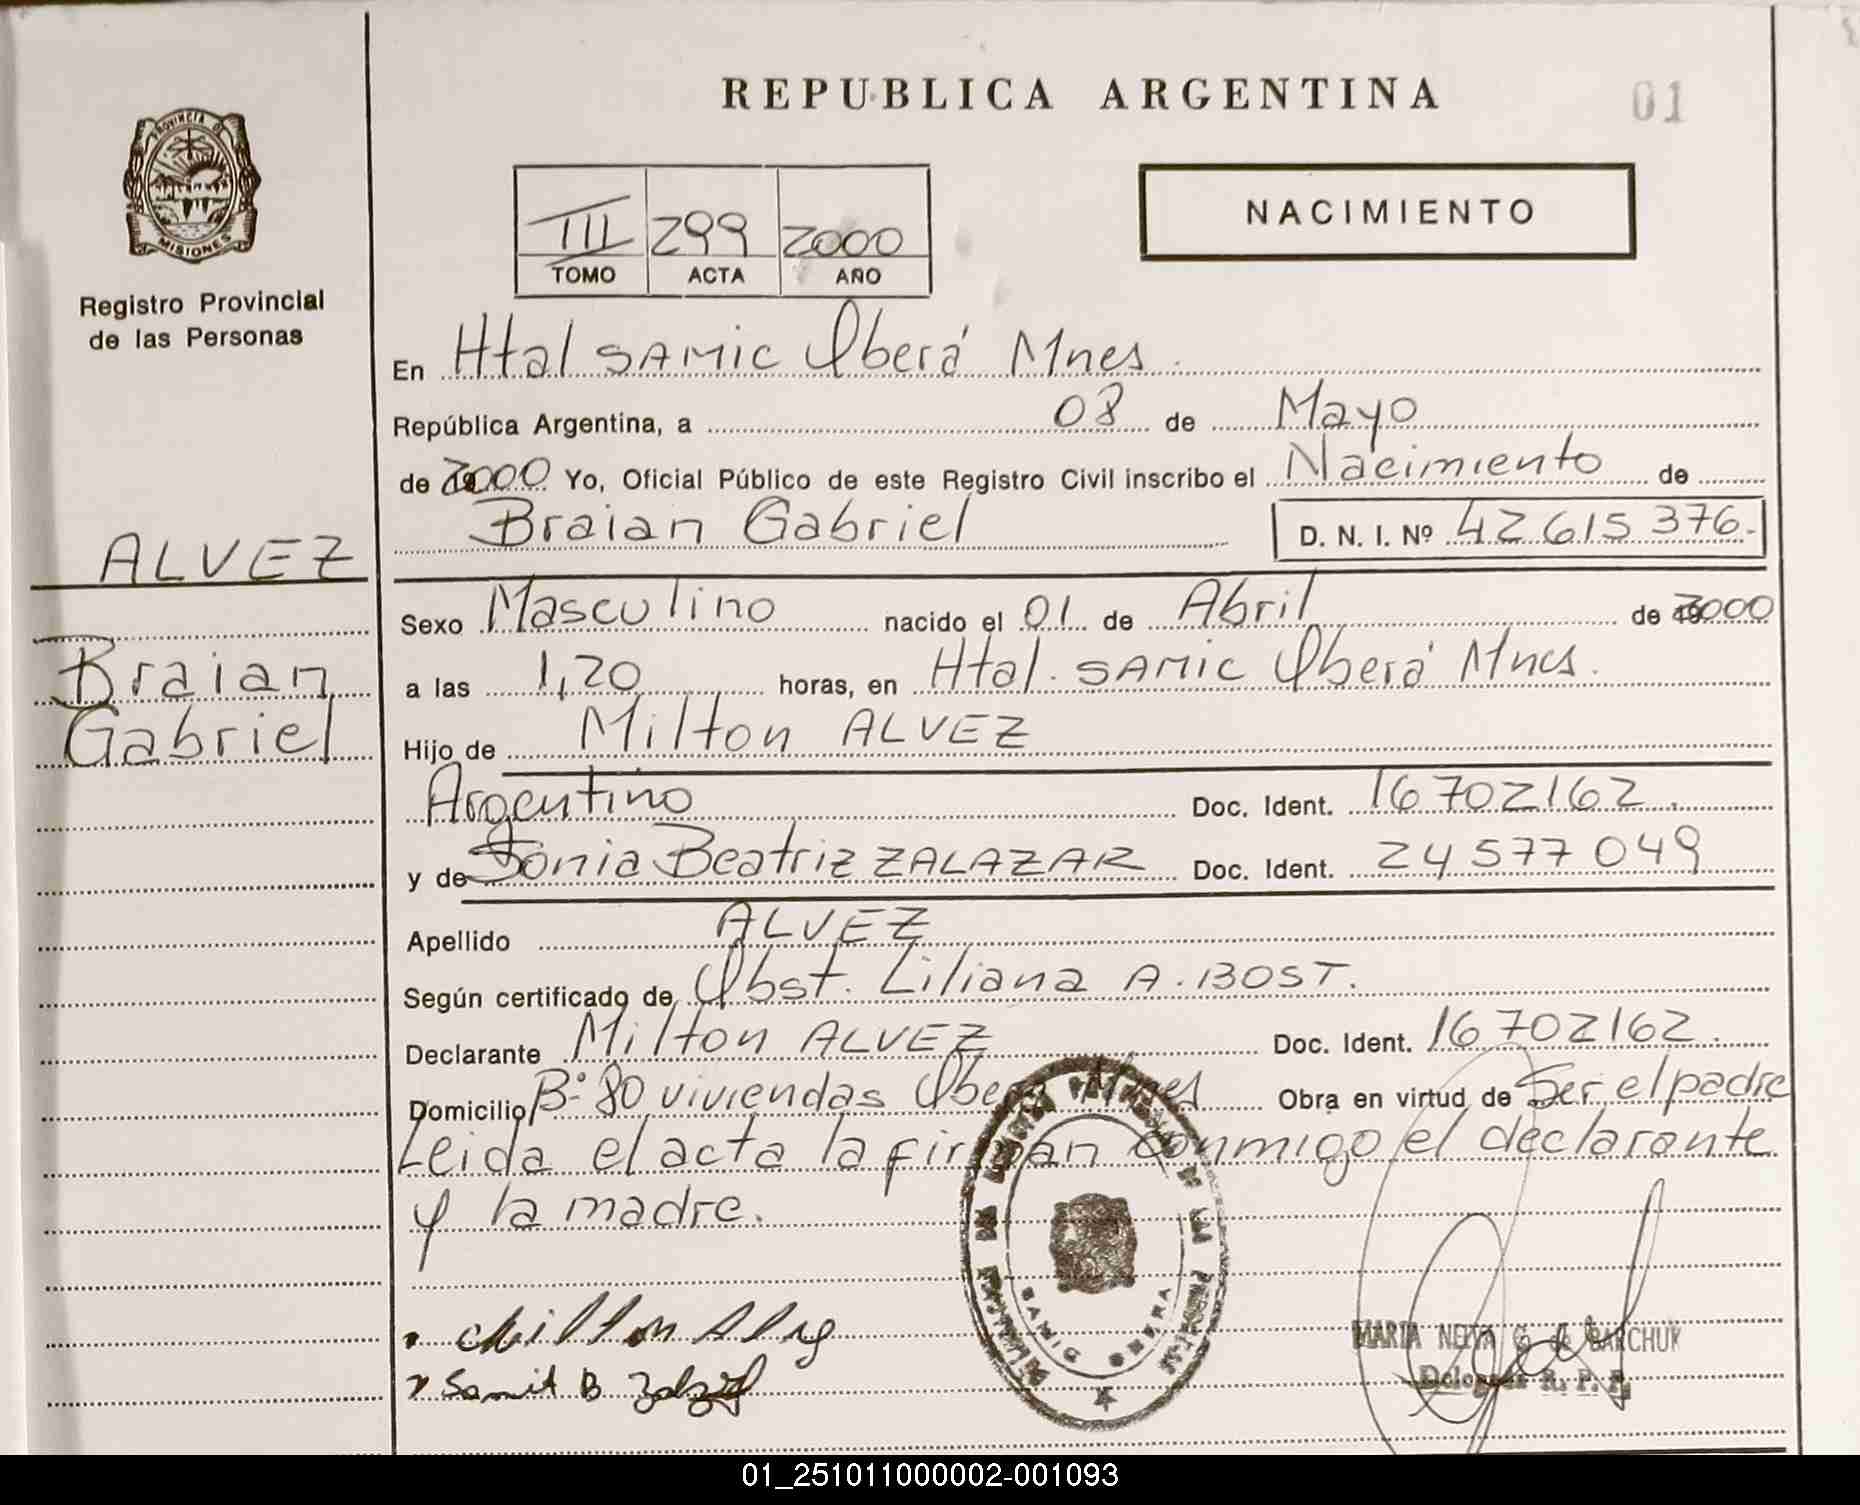 REPUBLICA ARGENTINA
01
PROVINCIA DE
MISIONES
Registro Provincial
de las Personas
III 299 2000
TOMO ACTA AÑO
NACIMIENTO
En Htal SAMIC Oberá Mnes.
República Argentina, a 08 de Mayo
de 2000 Yo, Oficial Público de este Registro Civil inscribo el Nacimiento de
Braian Gabriel D. N. I. Nº 42 615 376.-
ALVEZ
Braian
Gabriel
Sexo Masculino nacido el 01 de Abril de 2000
a las 1,20 horas, en Htal. SAMIC Oberá Mnes.
Hijo de Milton ALVEZ
Argentino Doc. Ident. 16 702162.
y de Sonia Beatriz ZALAZAR Doc. Ident. 24 577 049
Apellido ALVEZ
Según certificado de Obst. Liliana A. BOST.
Declarante Milton ALVEZ Doc. Ident. 16 702162.
Domicilio Bº 80 viviendas Oberá Mnes Obra en virtud de Ser el padre
Leida el acta la firman conmigo el declarante
y la madre.
SAMIC OBERA
MARIA G. de BARCHUK
R. P. P.
01_251011000002-001093